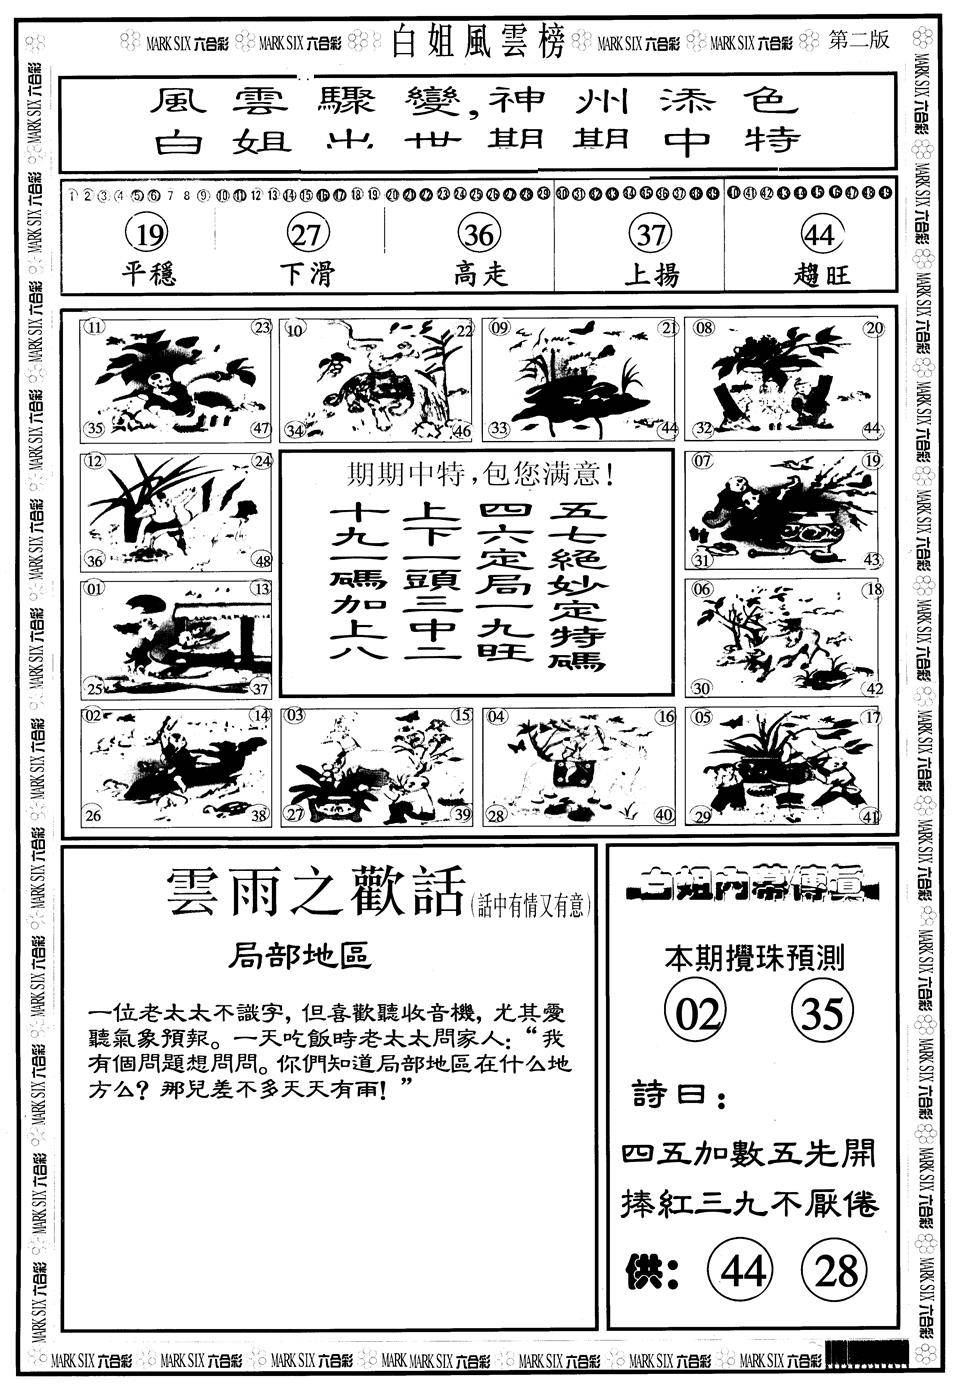 MARK SIX 六合彩 MARK SIX 六合彩 白姐風雲榜 MARK SIX 六合彩 MARK SIX 六合彩 第二版
風雲驟變,神州添色
白姐出世期期中特
1 2 3 4 5 6 7 8 9 10 11 12 13 14 15 16 17 18 19 20 21 22 23 24 25 26 27 28 29 30 31 32 33 34 35 36 37 38 39 40 41 42 43 44 45 46 47 48 49
19 27 36 37 44
平穩 下滑 高走 上揚 趨旺
11 23 10 22 09 21 08 20
35 47 34 46 33 44 32 44
12 24
36 48
01 13
25 37
期期中特,包您满意!
五七絕妙定特碼
四六定局一九旺
上下一頭三中二
十九一碼加上八
07 19
31 43
06 18
30 42
02 14 03 15 04 16 05 17
26 38 27 39 28 40 29 41
雲雨之歡話(話中有情又有意)
局部地區
一位老太太不識字,但喜歡聽收音機,尤其愛
聽氣象預報。一天吃飯時老太太問家人:“我
有個問題想問問。你們知道局部地區在什么地
方么?那兒差不多天天有雨!”
白姐內幕傳真
本期攪珠預測
02 35
詩曰:
四五加數五先開
捧紅三九不厭倦
供: 44 28
MARK SIX 六合彩 MARK SIX 六合彩 MARK SIX 六合彩 MARK MARK SIX 六合彩 MARK SIX 六合彩 MARK SIX 六合彩 MARK SIX 六合彩